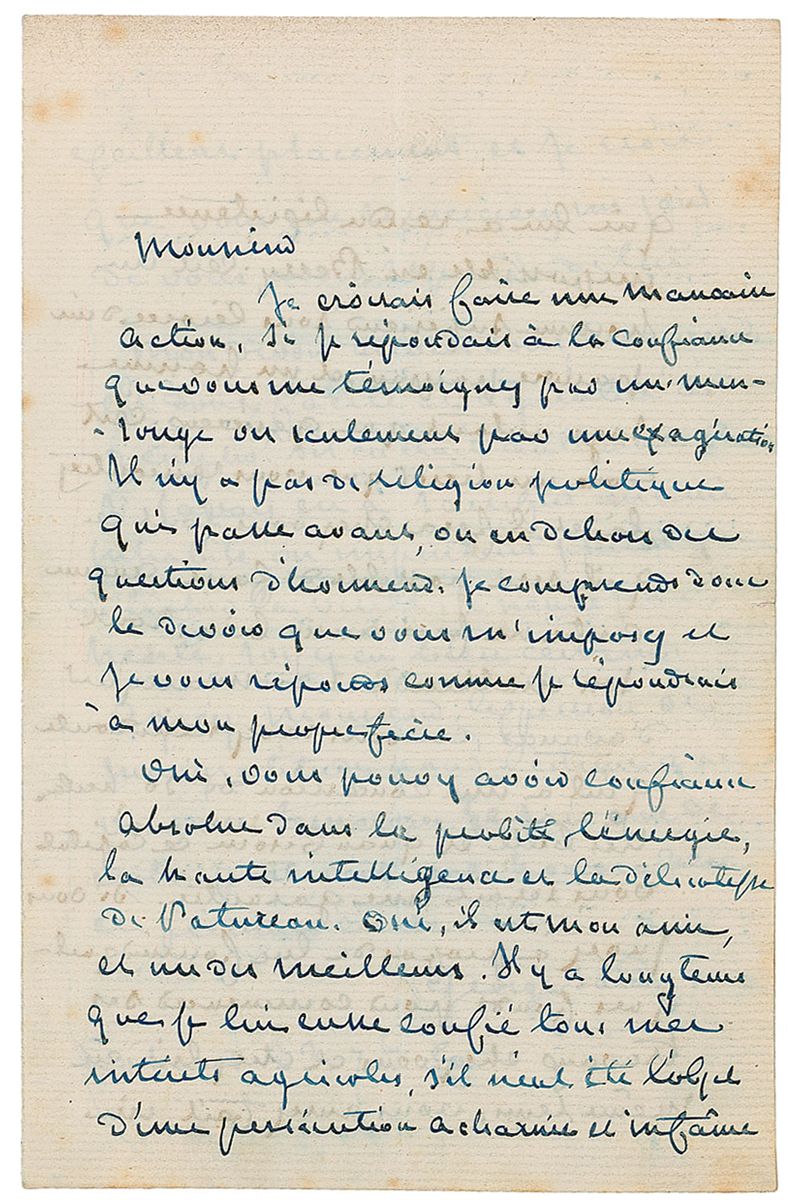 Monsieur
Je croirais faire une mauvaise
action, si je répondais à la confiance
que vous me témoignez par un men-
-songe ou seulement par une exagération
Il n'y a pas de religion politique
qui passe avant, ou en dehors des
questions d'honneur. Je comprends donc
le devoir que vous m'imposez et
je vous réponds comme je répondrais
à mon propre frère.
Oui, vous pouvez avoir confiance
absolue dans la probité, l'énergie,
la haute intelligence et la délicatesse
de Patureau. Oui, il est mon ami,
et un des meilleurs. Il y a longtems
que je lui eusse confié tous mes
intérets agricoles, s'il n'eut été l'objet
d'une persécution acharnée et infâme